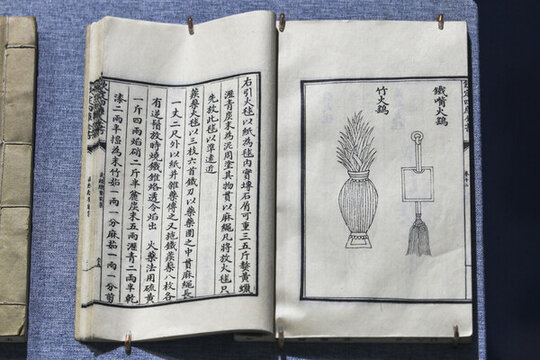 鐵嘴火鷂
竹火鷂
右引火毬以紙為毬内實塼石屑可重三五斤熬黄蠟
瀝青炭末為泥周塗其物貫以麻繩凡將放火毬只
先放此毬以準遠近
蒺藜火毬以三枝六首鐵刃以藥藥團之中貫麻繩長
一丈二尺外以紙并雜藥傅之又施鐵蒺藜八枚各
有逆鬚放時燒鐵錐烙透令焰出 火藥法用硫黄
一斤四兩焰硝二斤半麄炭末五兩瀝青二兩半乾
漆二兩半擣為末竹茹一兩一分麻茹一兩一分剪